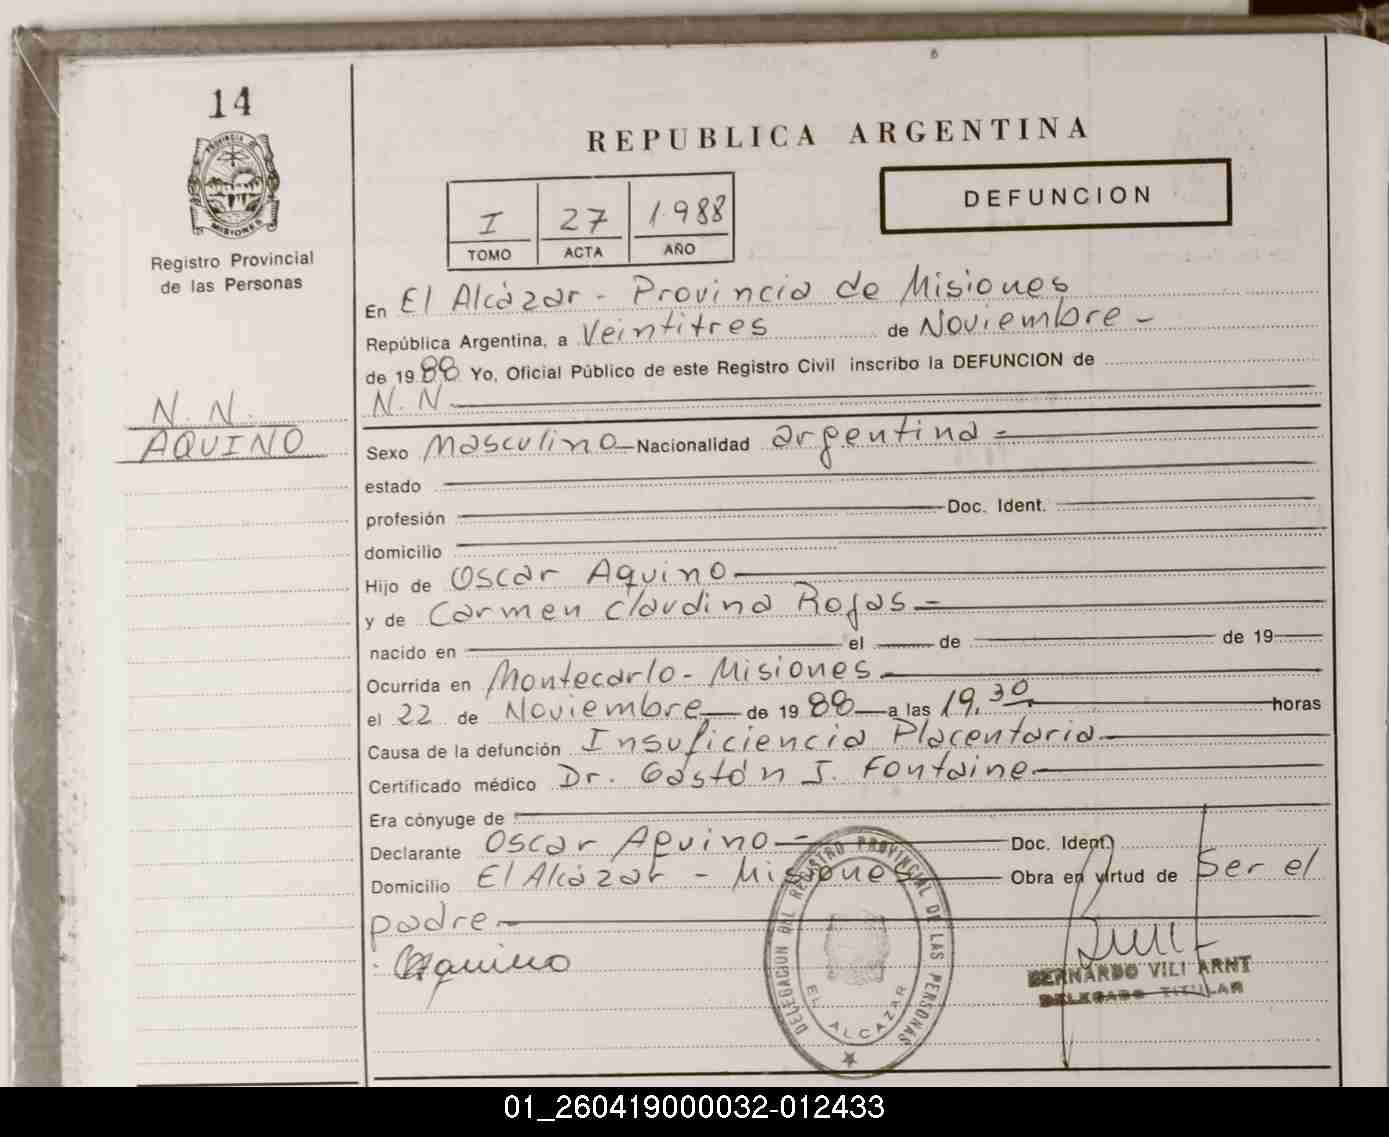 14
PROVINCIA DE
MISIONES
Registro Provincial
de las Personas
REPUBLICA ARGENTINA
DEFUNCION
I 27 1988
TOMO ACTA AÑO
En El Alcázar - Provincia de Misiones
República Argentina, a Veintitres de Noviembre -
de 1988 Yo, Oficial Público de este Registro Civil inscribo la DEFUNCION de
N. N. N. N
AQUINO
Sexo Masculino Nacionalidad argentina =
estado
profesión Doc. Ident.
domicilio
Hijo de Oscar Aquino
y de Carmen Claudina Rojas
nacido en el de de 19
Ocurrida en Montecarlo - Misiones
el 22 de Noviembre de 1988 a las 19.30 horas
Causa de la defunción Insuficiencia Placentaria
Certificado médico Dr. Gastón J. Fontaine
Era cónyuge de
Declarante Oscar Aquino Doc. Ident.
Domicilio El Alcázar - Misiones Obra en virtud de Ser el
padre
Aquino
DELEGACION DEL REGISTRO PROVINCIAL DE LAS PERSONAS
EL ALCAZAR
BERNARDO VILI ARNT
DELEGADO TITULAR
01_260419000032-012433